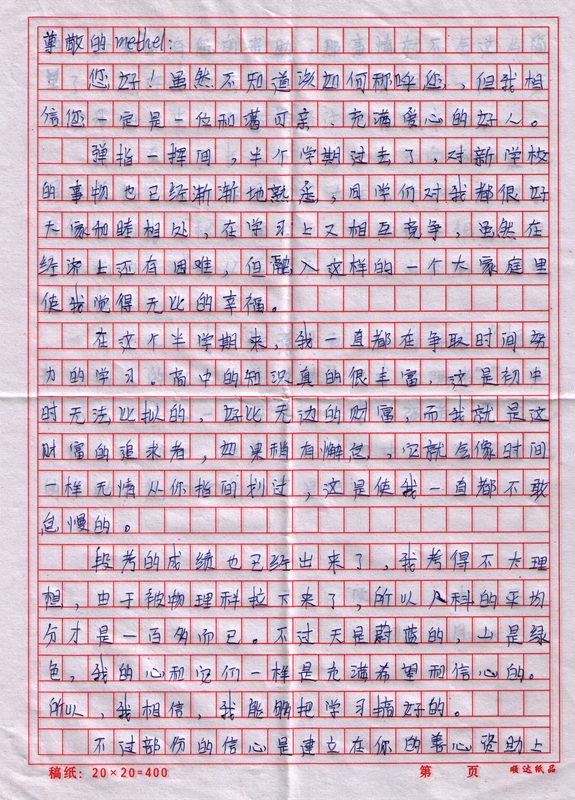 尊敬的methel：
您好！虽然不知道该如何称呼您，但我相
信您一定是一位和蔼可亲、充满爱心的好人。
弹指一挥间，半个学期过去了，对新学校
的事物也已经渐渐地熟悉，同学们对我都很好
大家和睦相处，在学习上又相互竞争，虽然在
经济上还有困难，但融入这样的一个大家庭里
使我觉得无比的幸福。
在这个半学期来，我一直都在争取时间努
力的学习。高中的知识真的很丰富，这是初中
时无法比拟的，好比无边的财富，而我就是这
财富的追求者，如果稍有懈怠，它就会像时间
一样无情从你指间划过，这是使我一直都不敢
怠慢的。
段考的成绩也已经出来了，我考得不太理
想，由于被物理科拉下来了，所以几科的平均
分才是一百多而已。不过天是蔚蓝的，山是绿
色，我的心和它们一样是充满希望和信心的。
所以，我相信，我能够把学习搞好的。
不过部份的信心是建立在你的善心资助上
稿纸：20×20=400 第 页 顺达纸品